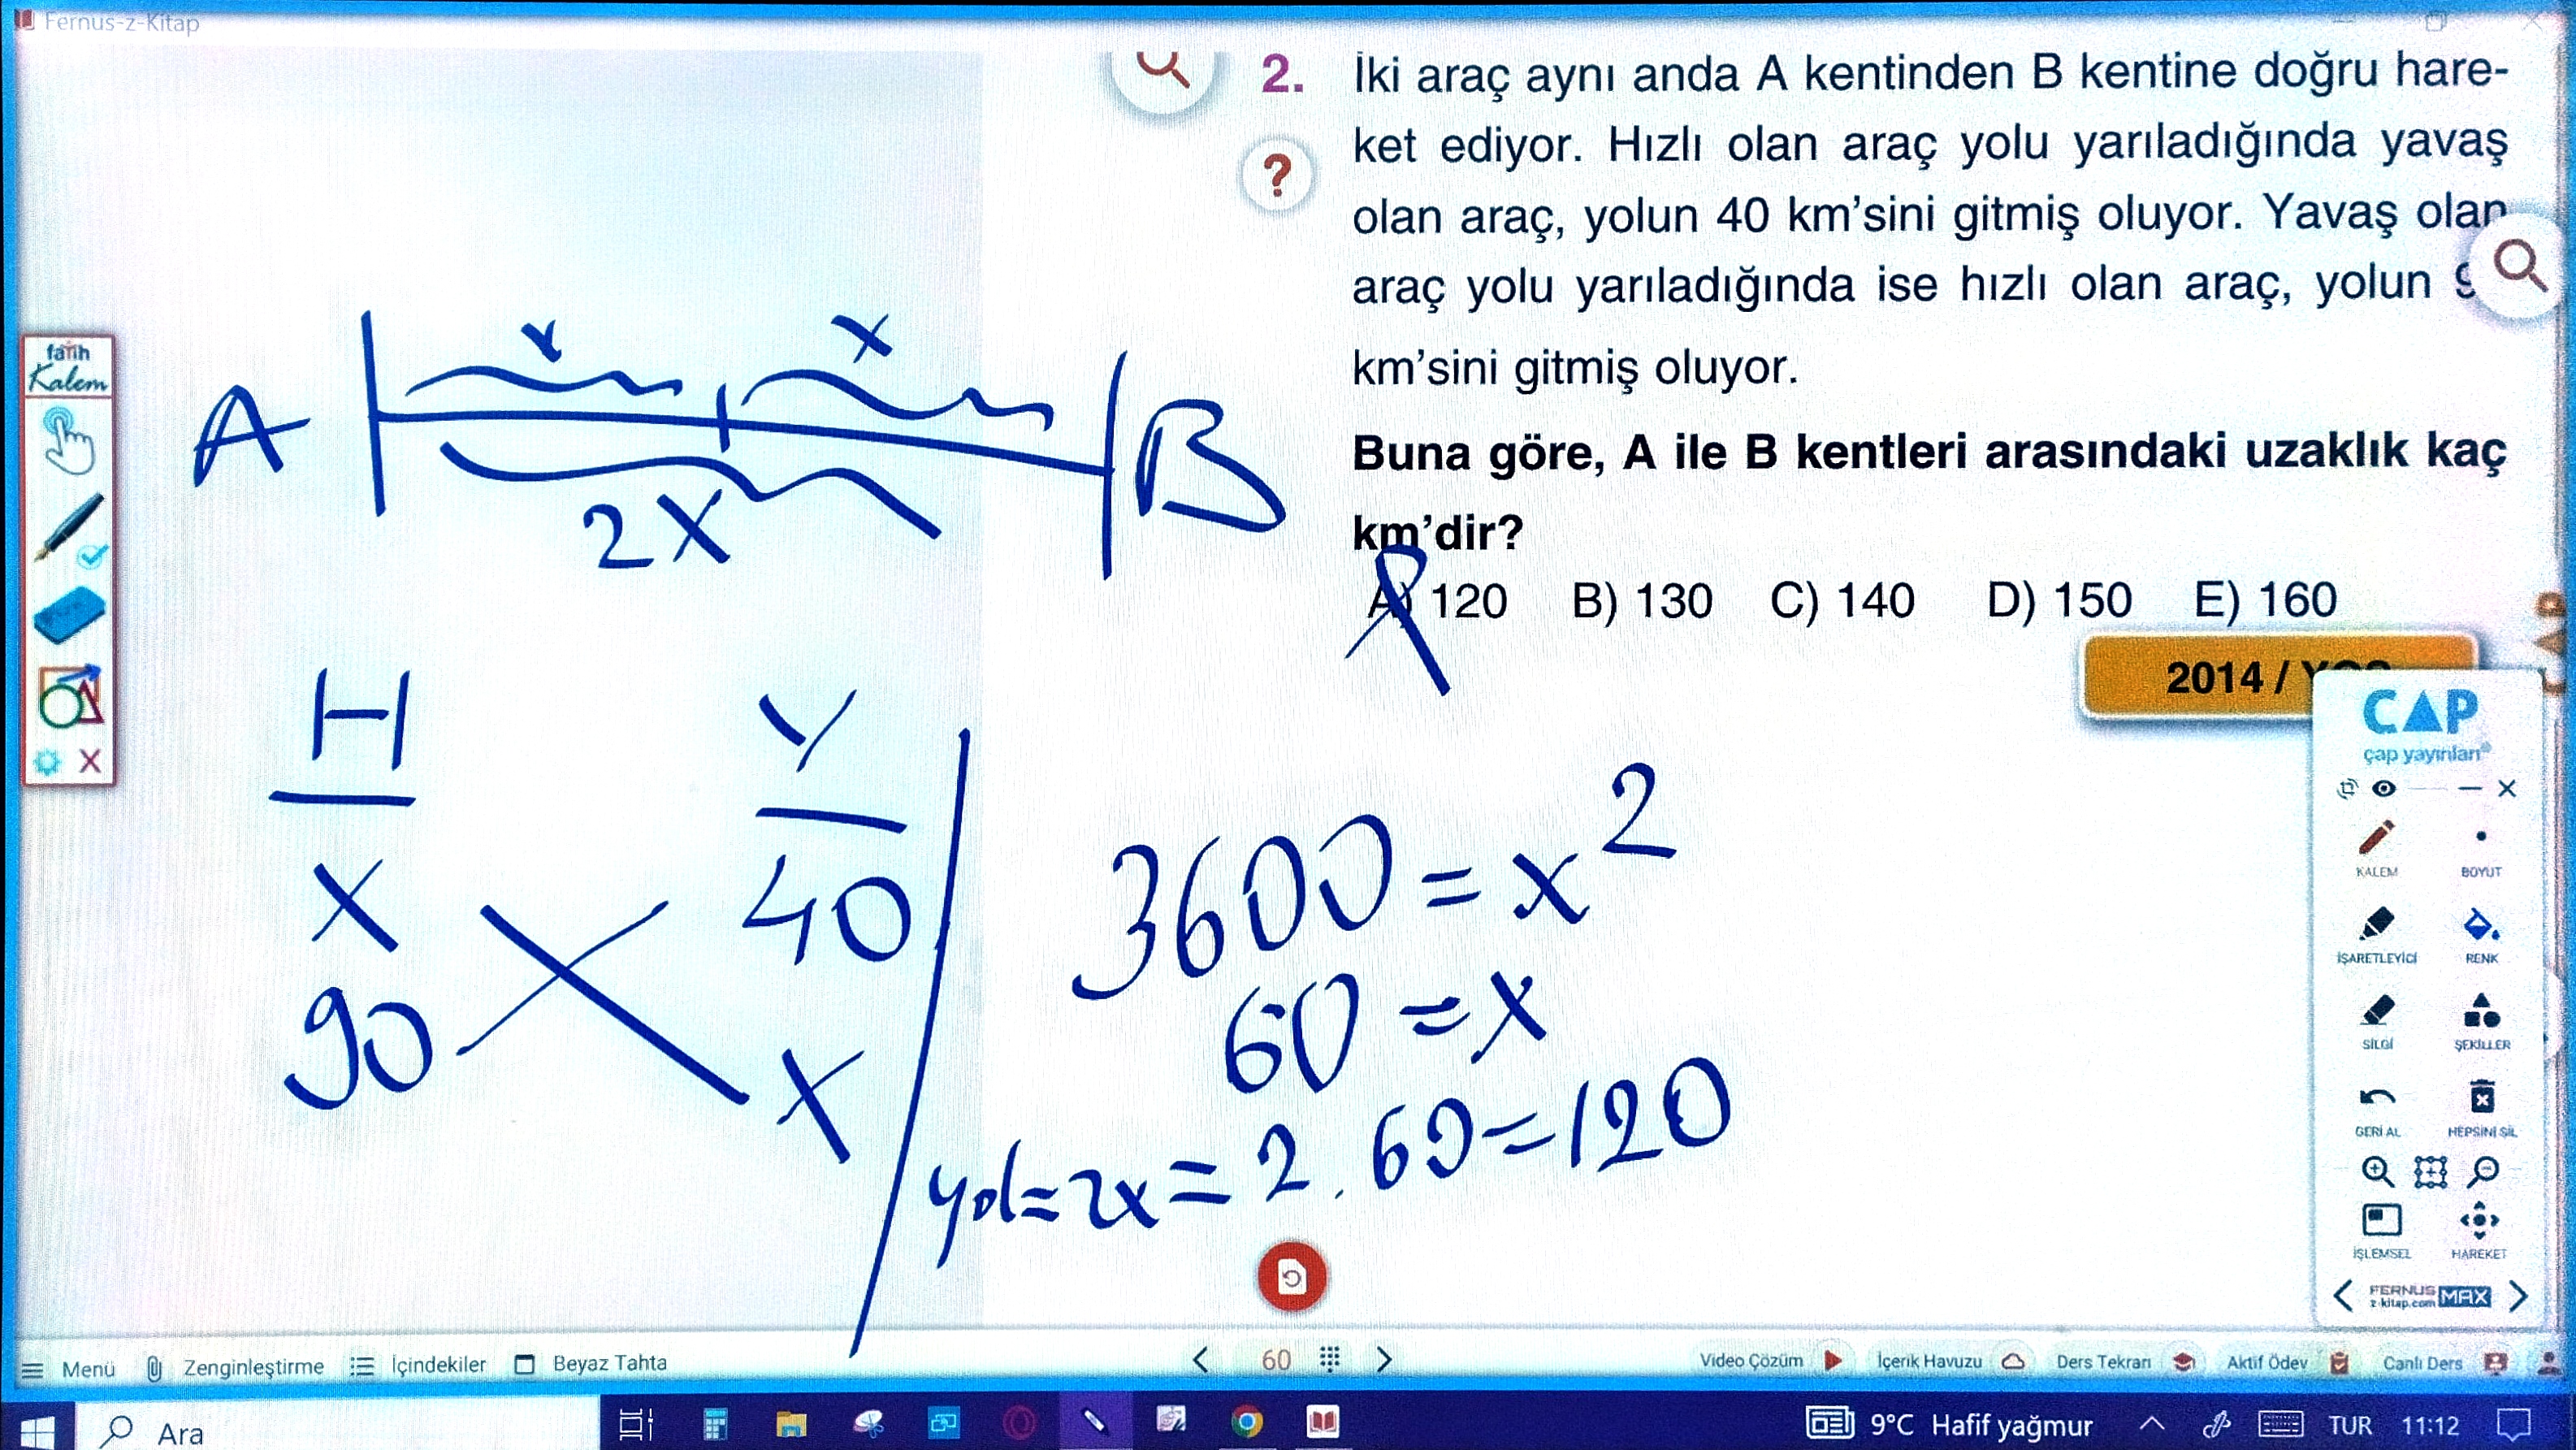 Fernus-z-Kitap
2. İki araç aynı anda A kentinden B kentine doğru hare-
ket ediyor. Hızlı olan araç yolu yarıladığında yavaş
? olan araç, yolun 40 km'sini gitmiş oluyor. Yavaş olan
araç yolu yarıladığında ise hızlı olan araç, yolun
km'sini gitmiş oluyor.
Buna göre, A ile B kentleri arasındaki uzaklık kaç
km'dir?
A) 120 B) 130 C) 140 D) 150 E) 160
2014 /
fatih
Kalem
x x
A B
2x
H Y
x 40
90 x
3600 = x²
60 = x
yol = 2x = 2 . 60 = 120
ÇAP
çap yayınları
KALEM BOYUT
İŞARETLEYİCİ RENK
SİLGİ ŞEKİLLER
GERİ AL HEPSİNİ SİL
İŞLEMSEL HAREKET
FERNUS
z-kitap.com MAX
Menü Zenginleştirme İçindekiler Beyaz Tahta 60 Video Çözüm İçerik Havuzu Ders Tekrarı Aktif Ödev Canlı Ders
Ara 9°C Hafif yağmur TUR 11:12